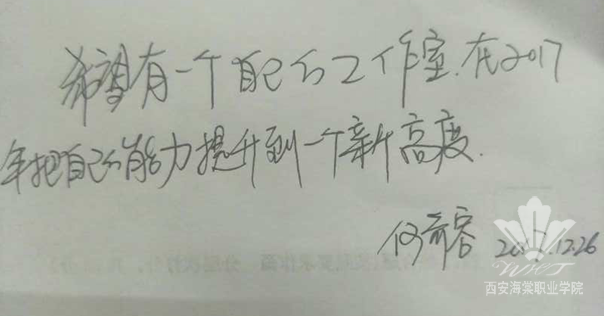 希望有一个自己的工作室.在2017
年把自己的能力提升到一个新高度.
何
12.26
西安海棠职业学院